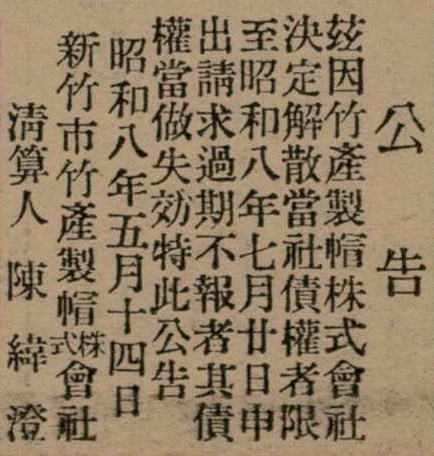 公告
茲因竹產製帽株式會社
決定解散當社債權者限
至昭和八年七月廿日申
出請求過期不報者其債
權當做失効特此公告
昭和八年五月十四日
新竹市竹產製帽株式會社
清算人 陳緯澄